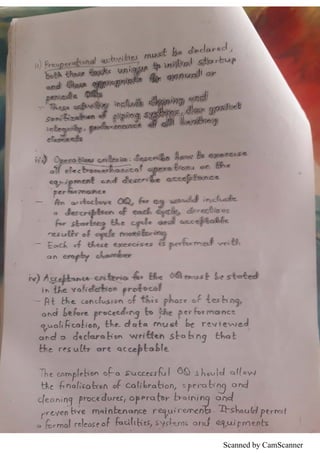 ii) Preoperational activities must be declared,
both those tasks unique to initial startup
and those appropriate for annual or
periodic OQs
- These activities include cleaning and
sanitization of piping systems, door gasket
integrity, performance of all heating
elements
iii) Operations criteria: describe how to exercise
all electromechanical operations on the
equipment and describe acceptance
performance
- An autoclave OQ, for eg would include
a description of each cycle, directions
for starting the cycle and acceptable
results of cycle monitoring
- Each of these exercises is performed with
an empty chamber
iv) Acceptance criteria for the OQ must be stated
in the validation protocol
- At the conclusion of this phase of testing,
and before proceeding to the performance
qualification, the data must be reviewed
and a declaration written stating that
the results are acceptable
The completion of a successful OQ should allow
the finalisation of calibration, operating and
cleaning procedures, operator training and
preventive maintenance requirements It should permit
a formal release of facilities, systems and equipments
Scanned by CamScanner